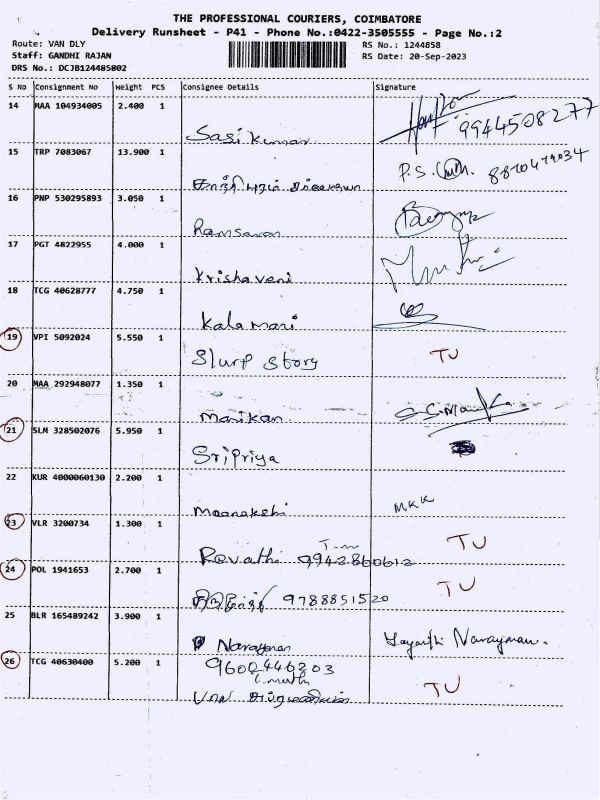 THE PROFESSIONAL COURIERS, COIMBATORE
Delivery Runsheet - P41 - Phone No.:0422-3505555 - Page No.:2
Route: VAN DLY RS No.: 1244858
Staff: GANDHI RAJAN RS Date: 20-Sep-2023
DRS No.: DCJB124485802
S No Consignment No Weight PCS Consignee Details Signature
14 MAA 104934005 2.400 1
Sasikumar 9944508277
15 TRP 7083067 13.900 1 P.S. 8870479034
16 PNP 530295893 3.050 1
Ramsavan
17 PGT 4822955 4.000 1
Krishaveni
18 TCG 40628777 4.750 1
Kala mani
19 VPI 5092024 5.550 1
Slurp Story TU
20 MAA 292948077 1.350 1
Manikan
21 SLM 328502076 5.950 1
Sripriya
22 KUR 4000060130 2.200 1
Meenakshi MKK
23 VLR 3200734 1.300 1
Revathi 9942860612 TU
24 POL 1941653 2.700 1
9788851520 TU
25 BLR 165489242 3.900 1
Narayanan Jayanthi Narayanan.
26 TCG 40630400 5.200 1
9600446203
TU